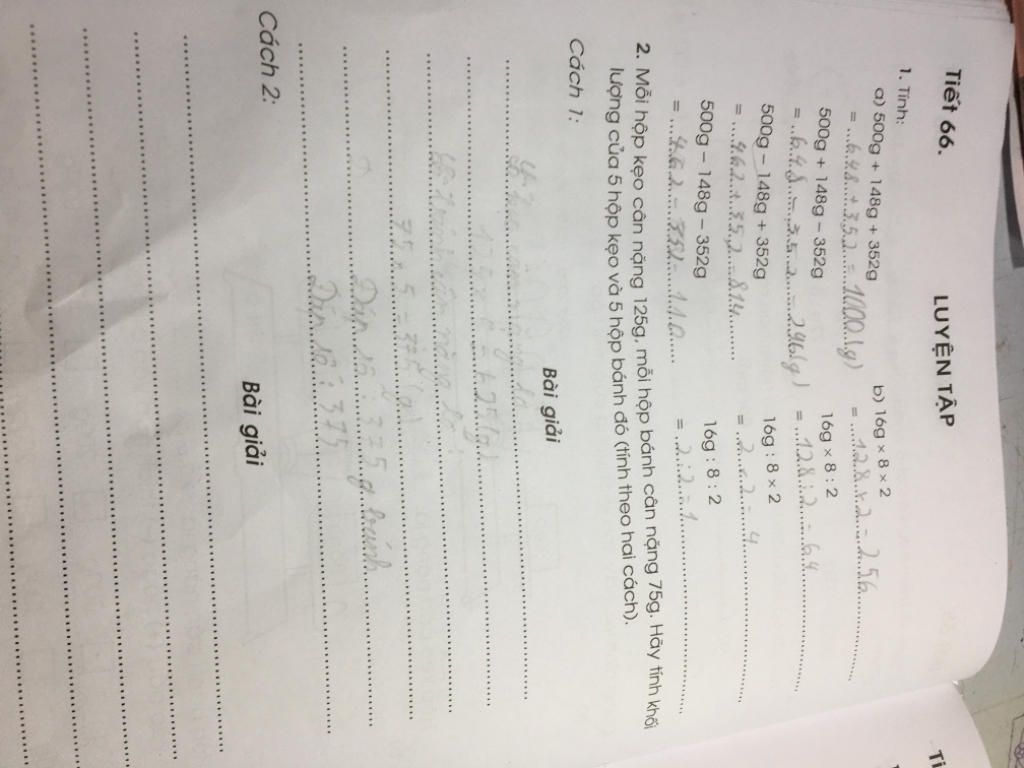 Tiết 66.
LUYỆN TẬP
1. Tính:
a) 500g + 148g + 352g
= 648 + 352 = 1000 (g)
500g + 148g – 352g
= 648 – 352 = 296 (g)
500g – 148g + 352g
= 462 + 352 = 814
500g – 148g – 352g
= 462 – 352 = 110
b) 16g × 8 × 2
= 128 × 2 = 256
16g × 8 : 2
= 128 : 2 = 64
16g : 8 × 2
= 2 × 2 = 4
16g : 8 : 2
= 2 : 2 = 1
2. Mỗi hộp kẹo cân nặng 125g, mỗi hộp bánh cân nặng 75g. Hãy tính khối
lượng của 5 hộp kẹo và 5 hộp bánh đó (tính theo hai cách).
Cách 1:
Bài giải
kẹo cân nặng là
125 × = 625 (g)
cân nặng là
75 × 5 = 375 (g)
Đáp số : 375 g bánh
Đáp số : 375
Cách 2:
Bài giải
Ti